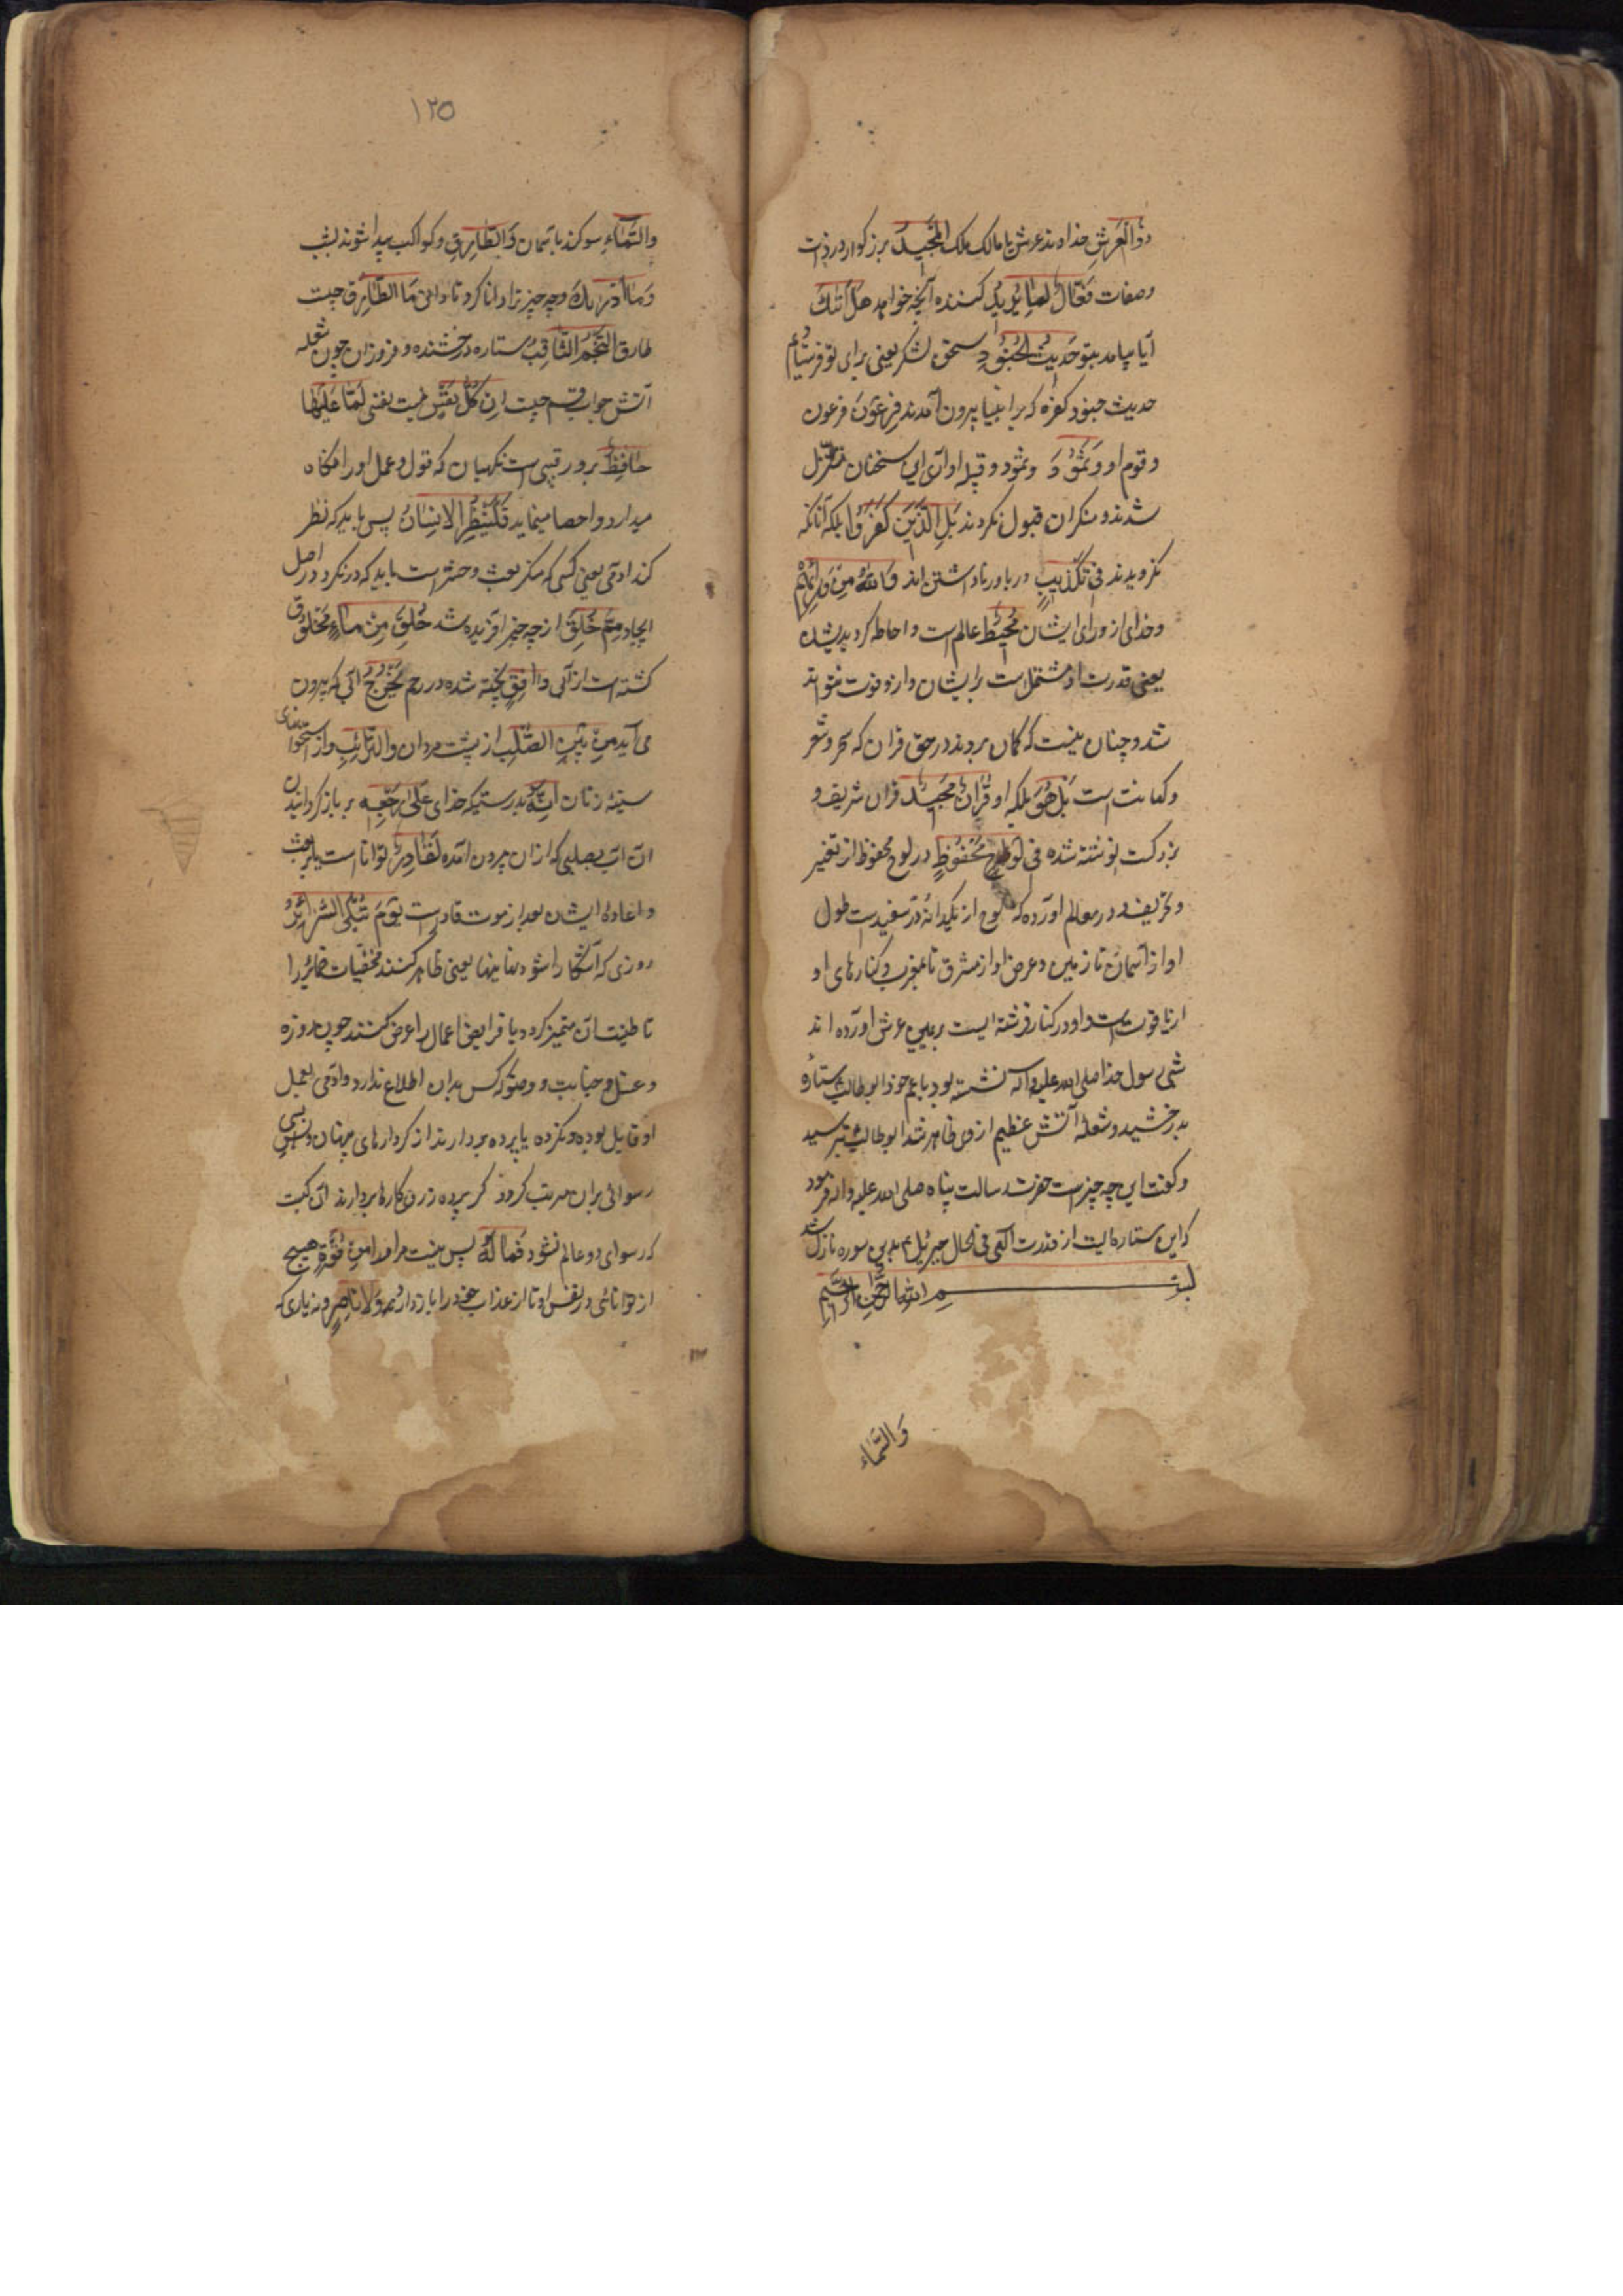 ذُو الْعَرْشِ خداوند عرش یا مالک ملک الْمَجِیدُ بزرکوار در ذات
و صفات فَعَّالٌ لِمَا یُرِیدُ کننده آنچه خواهد هَلْ اَتٰیکَ
آیا بیامد بتو حَدِیثُ الْجُنُودِ سخن لشکر یعنی برای تو فرستادیم
حدیث جنود کفره که بر انبیا بیرون آمدند فِرْعَوْنَ فرعون
و قوم او وَ ثَمُودَ و ثمود و قبیله او از این سخنان
شدند و منکران قبول نکردند بَلِ الَّذِینَ کَفَرُوا بلکه آنانکه
نکرویدند فِی تَکْذِیبٍ در باور ناداشتن اند وَاللهُ مِنْ وَرَائِهِمْ
و خدای از ورای ایشان مُحِیطٌ عالم است و احاطه کرده بدیشان
یعنی قدرت او مشتمل است بر ایشان و ازو فوت نتوانند
شد و چنان نیست که کمان بردند در حق قران که سحر و شعر
و کهانت است بَلْ هُوَ بلکه او قُرْاٰنٌ مَجِیدٌ قران شریف و
بزرکست نوشته شده فِی لَوْحٍ مَحْفُوظٍ در لوح محفوظ از تغیر
و تحریف و در معالم آورده که لوح از یکدانه در سفید است طول
او از آسمان تا زمین و عرض او از مشرق تا مغرب و کنارهای او
از یاقوت است و او در کنار فرشته ایست بر یمین عرش آورده اند
شبی رسول خدا صلی الله علیه و اله نشسته بود با عم خود ابوطالب ستاره
بدرخشید و شعلهٔ آتش عظیم از وی ظاهر شد ابوطالب بترسید
و کفت این چه چیز است حضرت رسالت پناه صلی الله علیه و اله فرمود
که این ستاره ایست از قدرت الهی فی الحال جبرئیل ع بدین سوره نازل شد
بسم الله الرحمن الرحیم
وَالسَّمَاءِ
۱۲۵
وَالسَّمَاءِ سوکند باسمان وَالطَّارِقِ و کواکب پیدا شونده بشب
وَمَا اَدْرٰیکَ و چه چیز ترا دانا کرد تا دانی مَا الطَّارِقُ چیست
طارق النَّجْمُ الثَّاقِبُ ستاره درخشنده و فروزان چون شعله
آتش جواب قسم چیست اِنْ کُلُّ نَفْسٍ نیست نفسی لَمَّا عَلَیْهَا
حَافِظٌ برو رقیبی است نکهبان که قول و عمل او را نکاه
میدارد و احصا مینماید فَلْیَنْظُرِ الْاِنْسَانُ پس باید که نظر
کند ادمی یعنی کسی که منکر بعث و حشر است باید که درنکرد در اصل
ایجاد مِمَّ خُلِقَ از چه چیز افریده شد خُلِقَ مِنْ مَاءٍ مخلوق
کشته است از آبی دَافِقٍ ریخته شده در رحم یَخْرُجُ آبی که بیرون
می آید مِنْ بَیْنِ الصُّلْبِ از پشت مردان وَالتَّرَائِبِ و از استخوانهای
سینهٔ زنان اِنَّهُ بدرستیکه خدای عَلٰی رَجْعِهِ بر بازکردانیدن
آن آب بصلبی که از آن بیرون آمده لَقَادِرٌ توانا است یا بر بعث
و اعادهٔ ایشان بعد از موت قادر است یَوْمَ تُبْلَی السَّرَائِرُ
روزی که آشکارا شود نهانیها یعنی ظاهر کنند مخفیات ضمایر را
تا طیبات آن متمیز کردد یا فرایض اعمال را عرض کنند چون روزه
و غسل جنابت و وضو که کس بدان اطلاع ندارد و ادمی بعمل
او قایل بوده و نکرده یا پرده بردارند از کردارهای پنهان و بسی
رسوائی بران مرتب کردد کر پرده ز روی کارها بردارند آن کیست
که رسوای دو عالم نشود فَمَا لَهُ پس نیست مر او را مِنْ قُوَّةٍ هیچ
از توانائی در نفس او تا از عذاب خود را باز دارد وَلَا نَاصِرٍ و نه یاری که